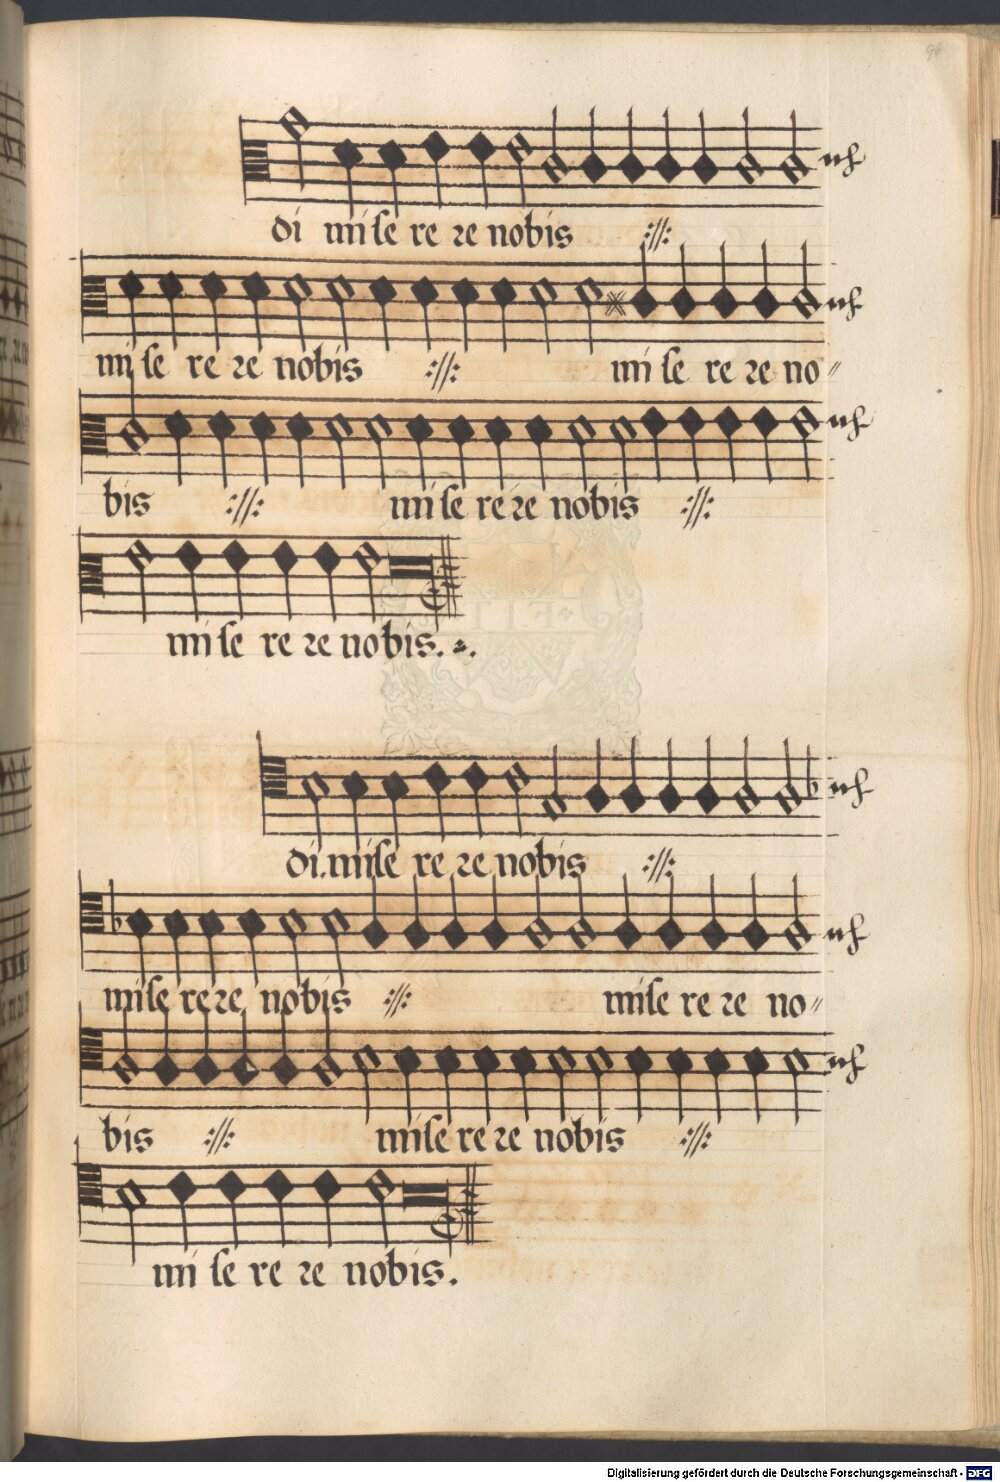 96
di mi se re re nobis :||:
mi se re re nobis :||: mi se re re no〃
bis :||: mi se re re nobis :||:
mi se re re nobis.
di. mi se re re nobis :||:
mi se re re nobis :||: mi se re re no〃
bis :||: mi se re re nobis :||:
mi se re re nobis.
Digitalisierung gefördert durch die Deutsche Forschungsgemeinschaft - DFG